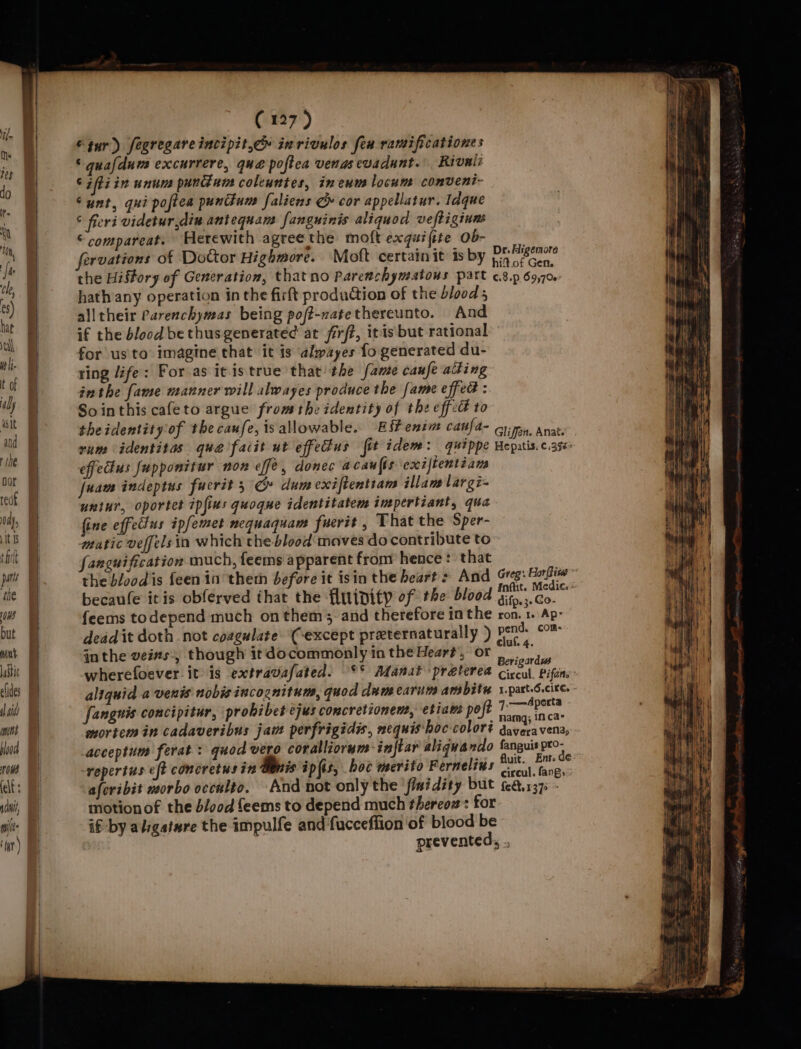 ( 127 )
‘tur) segregare incipit, & in rivulos seu ramificationes
‘ quasdum excurrere, quæ postea venas evadunt. Rivuli
‘ isti in unum punctum coleuntes, in eum locum conveni-
‘ unt, qui postea punctum saliens & cor appellatur. Idque
‘ fieri videtur, diu antequam sanguinis aliquod vestigium
‘ compareat. Herewith agree the most exquisite Ob-
servations of Doctor Highmore. Most certain it is by
the History of Generation, that no Parenchymatous part
hath any operation in the first production of the blood;
all their Parenchymas being post-nate thereunto. And
if the blood be thus generated at first, it is but rational
for us to imagine that it is alwayes so generated du-
ring life: For as it is true that the same cause acting
in the same manner will alwayes produce the same effect:
So in this case to argue from the identity of the effect to
the identity of the cause, is allowable. Est enim causa-
rum identitas quæ facit ut effectus sit idem: quippe
effectus supponitur non esse, donec a causis existentiam
suam indeptus fuerit; & dum existentiam illam largi-
untur, oportet ipsius quoque identitatem impertiant, qua
sine effectus ipsemet nequaquam fuerit, That the Sper-
matic vessels in which the blood moves do contribute to
sanguification much, seems apparent from hence: that
the blood is seen in them before it is in the heart: And
because it is observed that the fluidity of the blood
seems to depend much on them; and therefore in the
dead it doth not coagulate (except præternaturally)
in the veins, though it do commonly in the Heart, or
wheresoever it is extravasated. ‘‘ Manat præterea
aliquid a venis nobis incognitum, quod dum earum ambitu
sanguis concipitur, prohibet ejus concretionem, etiam post
mortem in cadaveribus jam perfrigidis, nequis hoc colori
acceptum ferat: quod vero coralliorum instar aliquando
repertus est concretus in venis ipsis, hoc merito Fernelius
ascribit morbo occulto. And not only the fluidity but
motion of the blood seems to depend much thereon: for
if by a ligature the impulse and succession of blood be
prevented,
Dr. Higemore
hist. of Gen.
c.8.p 69,70.
Glisson. Anat.
Hepatis. c.35.
Greg. Horstius
Instit. Medic.
disp.3. Co-
ron. 1. Ap-
pend. com-
clus. 4.
Berigardus
Circul. Pisan.
1.part.6.circ.
7.—Aperta
namq; in ca-
davera vena,
sanguis pro-
fluit. Ent. de
circul. sang.
sect.137.